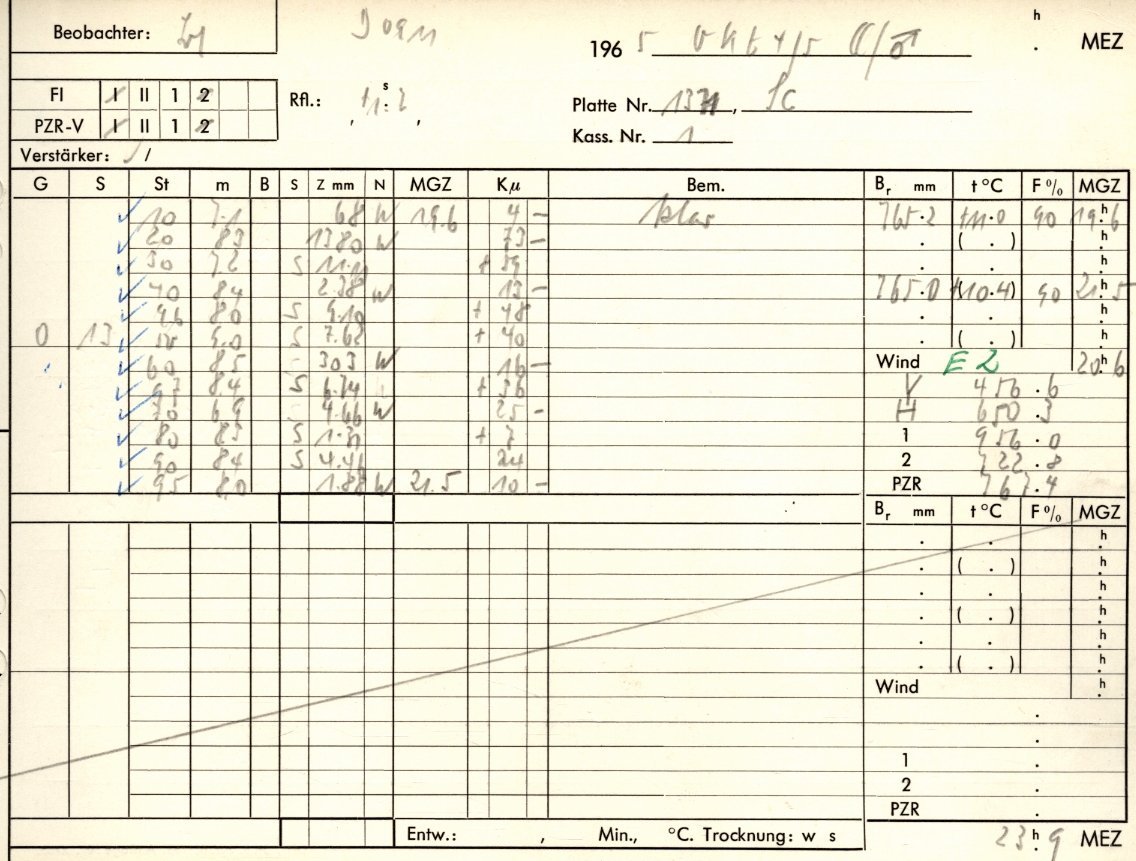 Beobachter:
1965 Okt 4/5 MEZ
FI I II 1 2 Rfl.: +1.2 s Platte Nr. , Sc
PZR-V I II 1 2 Kass. Nr. 1
Verstärker: /
G S St m B S Z mm N MGZ Kμ Bem. Br mm t °C F % MGZ
10 7.1 68 W 19.6 4 – klar 765.2 +11.0 90 19.h6
20 8.3 1380 W 73 – . ( . ) h
30 7.2 S 11.11 + 59 . . h
40 8.4 2.38 W 13 – 765.0 (+10.4) 90 21.h5
96 8.0 S 9.10 + 48 . . h
0 13 50 S 7.62 + 40 . ( . ) h
60 8.5 303 W 16 – Wind E 2 20.h6
97 8.4 S 6.74 + 36 V 456.6
70 6.9 4.66 W 25 – H 650.3
80 8.3 S + 7 1 956.0
90 8.4 S 4.46 24 2 722.8
95 8.0 1.88 W 21.5 10 – PZR 767.4
Br mm t °C F % MGZ
. . h
. ( . ) h
. . h
. ( . ) h
. . h
. ( . ) h
Wind h
.
.
1 .
2 .
PZR .
Entw.: , Min., °C. Trocknung: w s 23.h9 MEZ